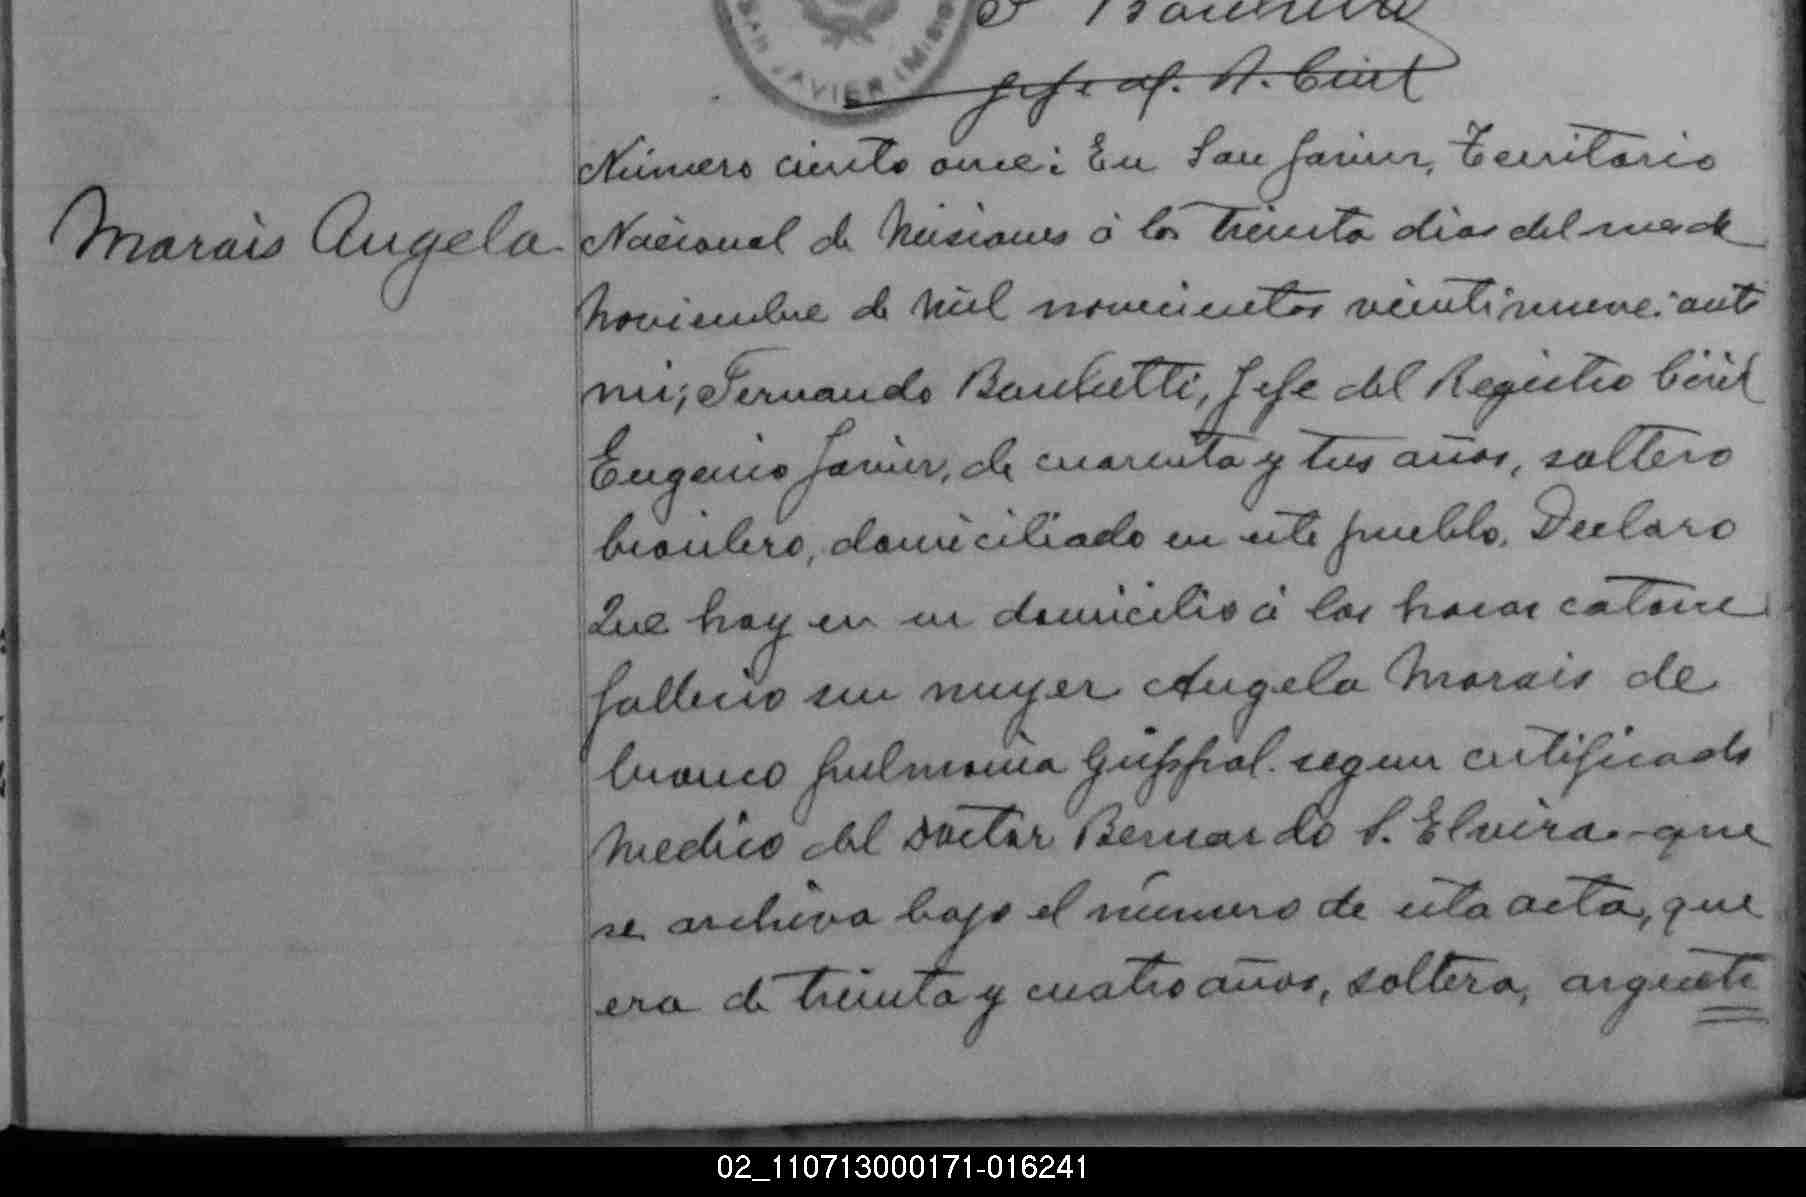 SAN JAVIER (MISIO
Jefe del R. Civil
Número ciento once: En San Javier, Territorio
Morais Angela
Nacional de Misiones á los treinta dias del mes de
Noviembre de mil novecientos veintinueve: ante
mi; Fernando, Jefe del Registro Civil
Eugenio Javier, de cuarenta y tres años, soltero
brasilero, domiciliado en este pueblo, Declaro
Que hoy en su domicilio á las horas catorce
fallecio su muyer Angela Morais de
bronco pulmonia grippal. segun certificado
medico del Doctor Bernardo S. Elvira. que
se archiva bajo el número de esta acta, que
era de treinta y cuatro años, soltera, argenti
02_110713000171-016241